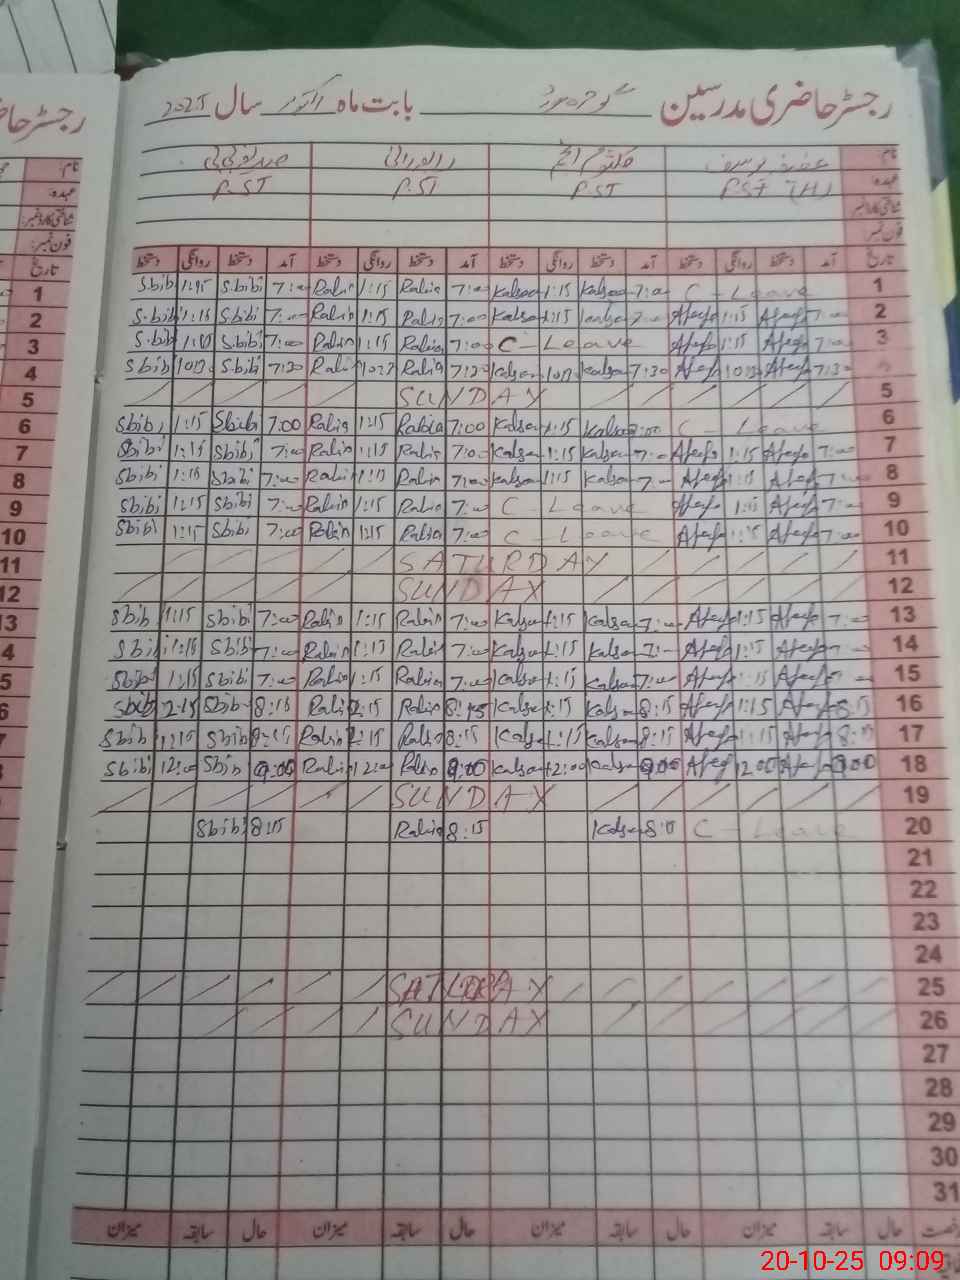 رجسٹر حاضری مدرسین بابت ماہ اکتوبر سال 2025
نام
عہدہ: P.S.T (H) P.S.T P.S.T P.S.T
شناختی کارڈ نمبر:
فون نمبر:
تاریخ آمد دستخط روانگی دستخط آمد دستخط روانگی دستخط آمد دستخط روانگی دستخط آمد دستخط روانگی دستخط
Sbibi Sbibi 7:00 Rabia 1:15 Rabia 7:00 Kalsoo 1:15 Kalsoo 7:00 C - Leave 1
S.bibi 1:15 Sbibi 7:00 Rabia 1:15 Rabia 7:00 Kalsoo 1:15 7:00 Afeefa 1:15 Afeefa 7:00 2
S.bibi Sbibi 7:00 Rabia 1:15 Rabia 7:00 C - Leave Afeefa 1:15 Afeefa 7:00 3
Sbibi Sbibi 7:30 Rabia Rabia 7:30 Kalsoo Kalsoo 7:30 Afeefa Afeefa 7:30 4
SUNDAY 5
Sbibi 1:15 Sbibi 7:00 Rabia 1:15 Rabia 7:00 Kalsoo 1:15 Kalsoo 7:00 C - Leave 6
Sbibi 1:15 Sbibi 7:00 Rabia 1:15 Rabia 7:00 Kalsoo 1:15 Kalsoo 7:00 Afeefa 1:15 Afeefa 7:00 7
Sbibi 1:15 Sbibi 7:00 Rabia 1:15 Rabia 7:00 Kalsoo 1:15 Kalsoo 7:00 Afeefa 1:15 Afeefa 7:00 8
Sbibi 1:15 Sbibi 7:00 Rabia 1:15 Rabia 7:00 C - Leave Afeefa 1:15 Afeefa 7:00 9
Sbibi 1:15 Sbibi 7:00 Rabia 1:15 Rabia 7:00 C - Leave Afeefa 1:15 Afeefa 7:00 10
SATURDAY 11
SUNDAY 12
Sbib 1:15 Sbibi 7:00 Rabia 1:15 Rabia 7:00 Kalsoo 1:15 Kalsoo 7:00 Afeefa 1:15 Afeefa 7:00 13
Sbibi 1:15 Sbibi 7:00 Rabia 1:15 Rabia 7:00 Kalsoo 1:15 Kalsoo 7:00 Afeefa 1:15 Afeefa 7:00 14
Sbibi 1:15 Sbibi 7:00 Rabia 1:15 Rabia 7:00 Kalsoo 1:15 Kalsoo 7:00 Afeefa 1:15 Afeefa 7:00 15
Sbib 2:15 Sbib 8:15 Rabia 2:15 Rabia 8:15 Kalsoo 1:15 Kalsoo 8:15 Afeefa 1:15 Afeefa 8:15 16
Sbib 1:15 Sbibi 8:15 Rabia 2:15 Rabia 8:15 Kalsoo 1:15 Kalsoo 8:15 Afeefa 1:15 Afeefa 8:15 17
Sbibi 12:00 Sbib 9:00 Rabia 12:00 Rabia 9:00 Kalsoo 12:00 Kalsoo 9:00 Afeefa 12:00 Afeefa 9:00 18
SUNDAY 19
Sbibi 8:15 Rabia 8:15 Kalsoo 8:15 C - Leave 20
21
22
23
24
SATURDAY 25
SUNDAY 26
27
28
29
30
31
رخصت حال سابقہ میزان حال سابقہ میزان حال سابقہ میزان حال سابقہ میزان
20-10-25 09:09